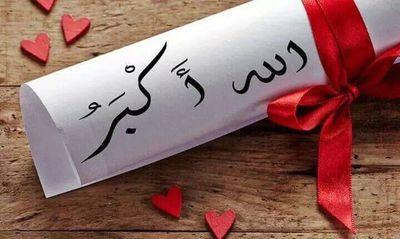 الله أَكْبَرُ